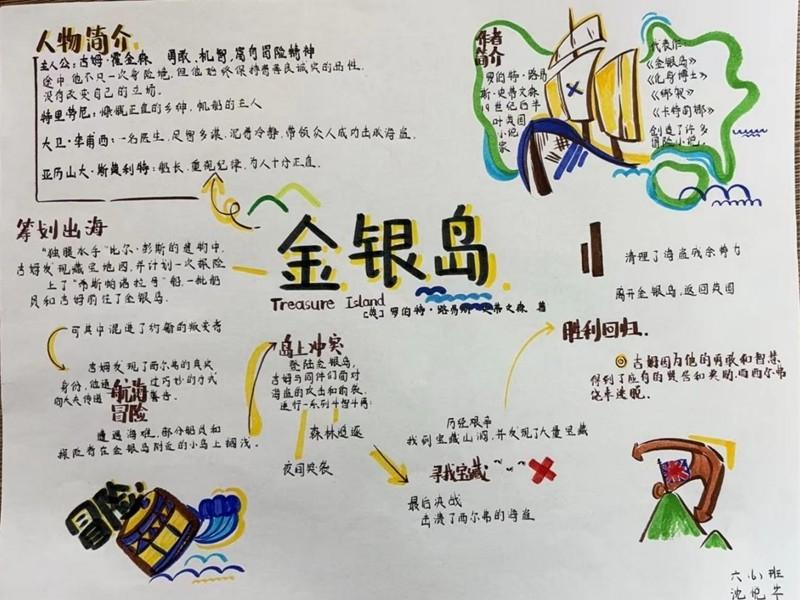 人物简介
主人公：吉姆·霍金森 勇敢，机智，富有冒险精神
途中他不只一次身险境，但他始终保持着善良诚实的品性。
没有改变自己的立场。
特里劳尼：慷慨正直的乡绅，帆船的主人
大卫·李甫西：一名医生，足智多谋，沉着冷静，带领众人成功击败海盗。
亚历山大·斯莫利特：船长，重视纪律，为人十分正直。
作者
简介
罗伯特·路易
斯·史蒂文森
19世纪后半
叶英国
小说
家
代表作：
《金银岛》
《化身博士》
《绑架》
《卡特丽娜》
创造了许多
冒险小说。
金银岛
Treasure Island
[英] 罗伯特·路易斯·史蒂文森 著
筹划出海
“独腿水手”比尔·彭斯的遗物中，
吉姆发现藏宝地图，并计划一次探险
上了“希斯帕诺拉号”船，一批船
员和吉姆前往了金银岛
可其中混进了约翰的叛变者
吉姆发现了西尔弗的真实
身份，他通过巧妙的方式
向大夫传递警告。
航海
冒险
遭遇海难，部分船员和
探险者在金银岛附近的小岛上搁浅
岛上冲突
登陆金银岛，
吉姆与同伴们面对
海盗的攻击和的袭，
进行一系列斗智斗勇
森林追逐
夜间突袭
历经艰辛
找到宝藏山洞，并发现了大量宝藏
寻找宝藏
最后决战
击溃了西尔弗的海盗
清理了海盗残余势力
离开金银岛，返回英国
胜利回归
吉姆因为他的勇敢和智慧
得到了应有的赞誉和奖励，而西尔弗
冒险
六（6）班